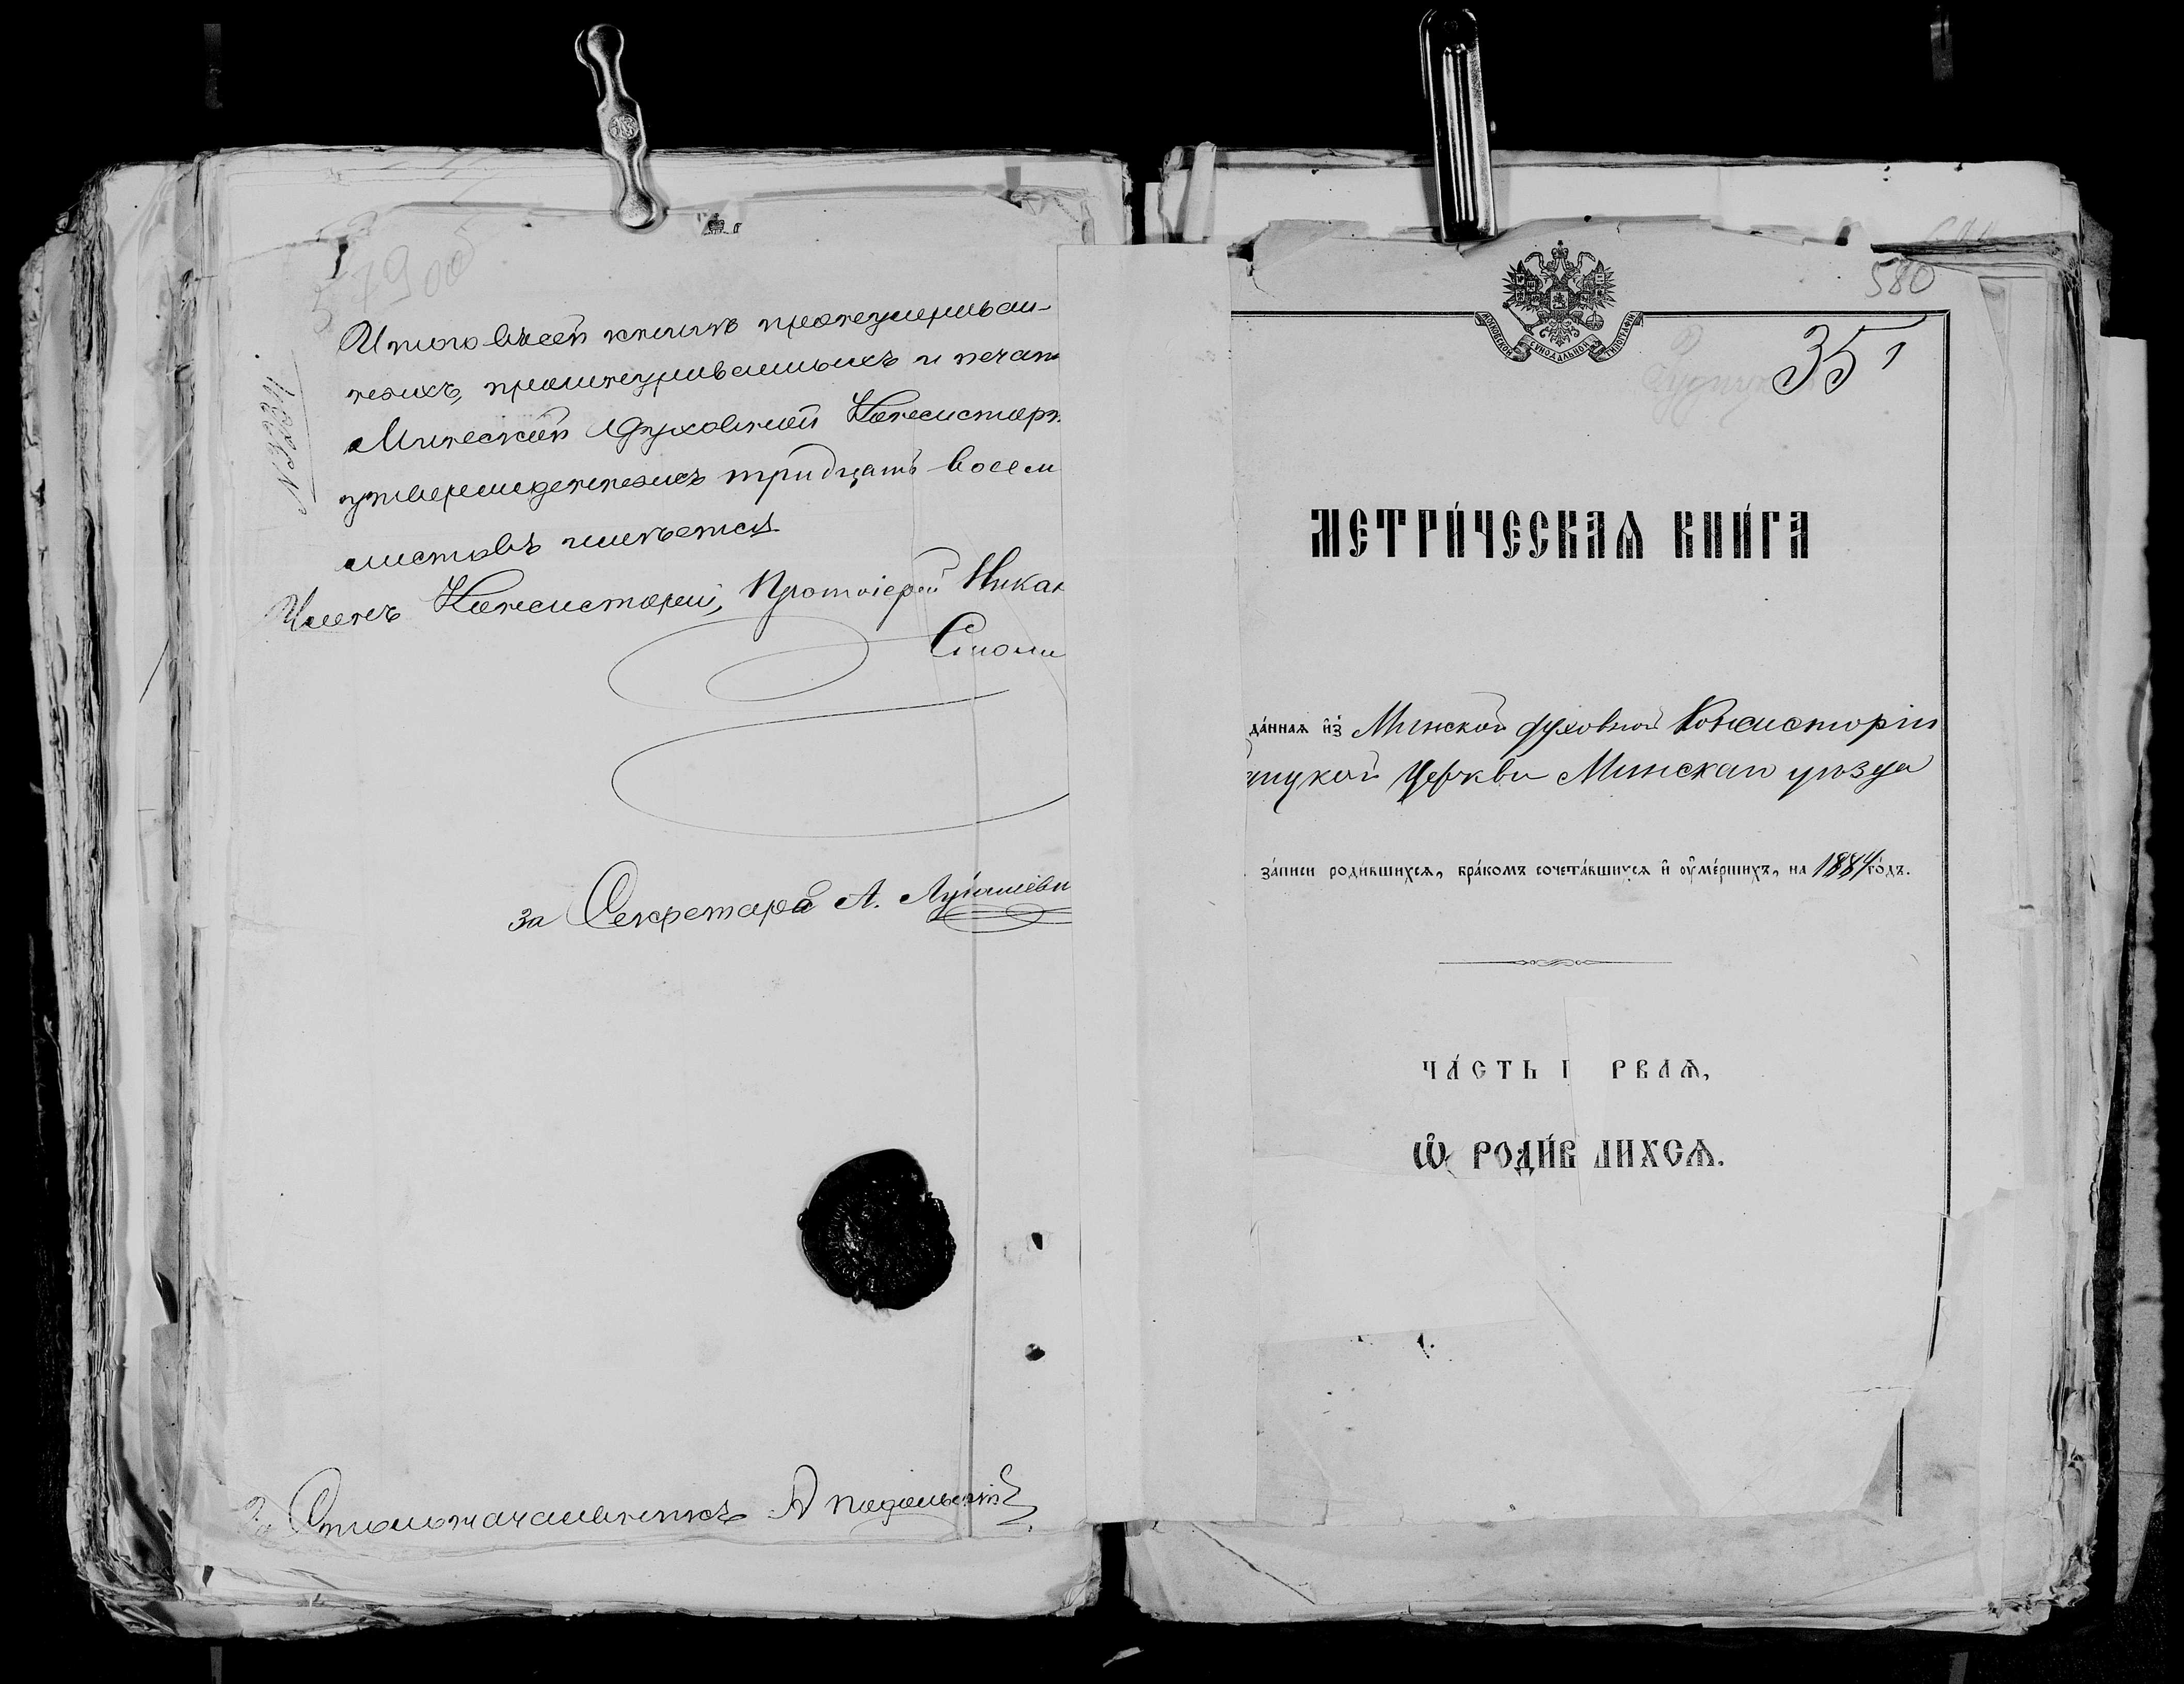 57900
N 3234
Итого въ сей книгѣ пронумерован-
ныхъ, прошнурованныхъ и печат
Минской Духовной Консистор
утвержденныхъ тридцать восем
листовъ имѣется
Членъ Консисторіи, Протоіерей Никан
Смоли
За Секретаря А.
За Столоначальника А Подольскій
580
МОСКОВСКОЙ СѴНОДАЛЬНОЙ ТИПОГРАФІИ
35
МЕТРИ́ЧЕСКАѦ КНИ́ГА
да́ннаѧ и҆зъ Минской духовной Консисторіи
цкой Церкви Минскаго уѣзда
за́писи роди́вшихсѧ, бра́комъ сочета́вшихсѧ и҆ ᲂу҆ме́ршихъ, на 1884 го́дъ.
ЧА́СТЬ П РВАѦ,
Ѡ҆ РОДИ́В ШИХСѦ.